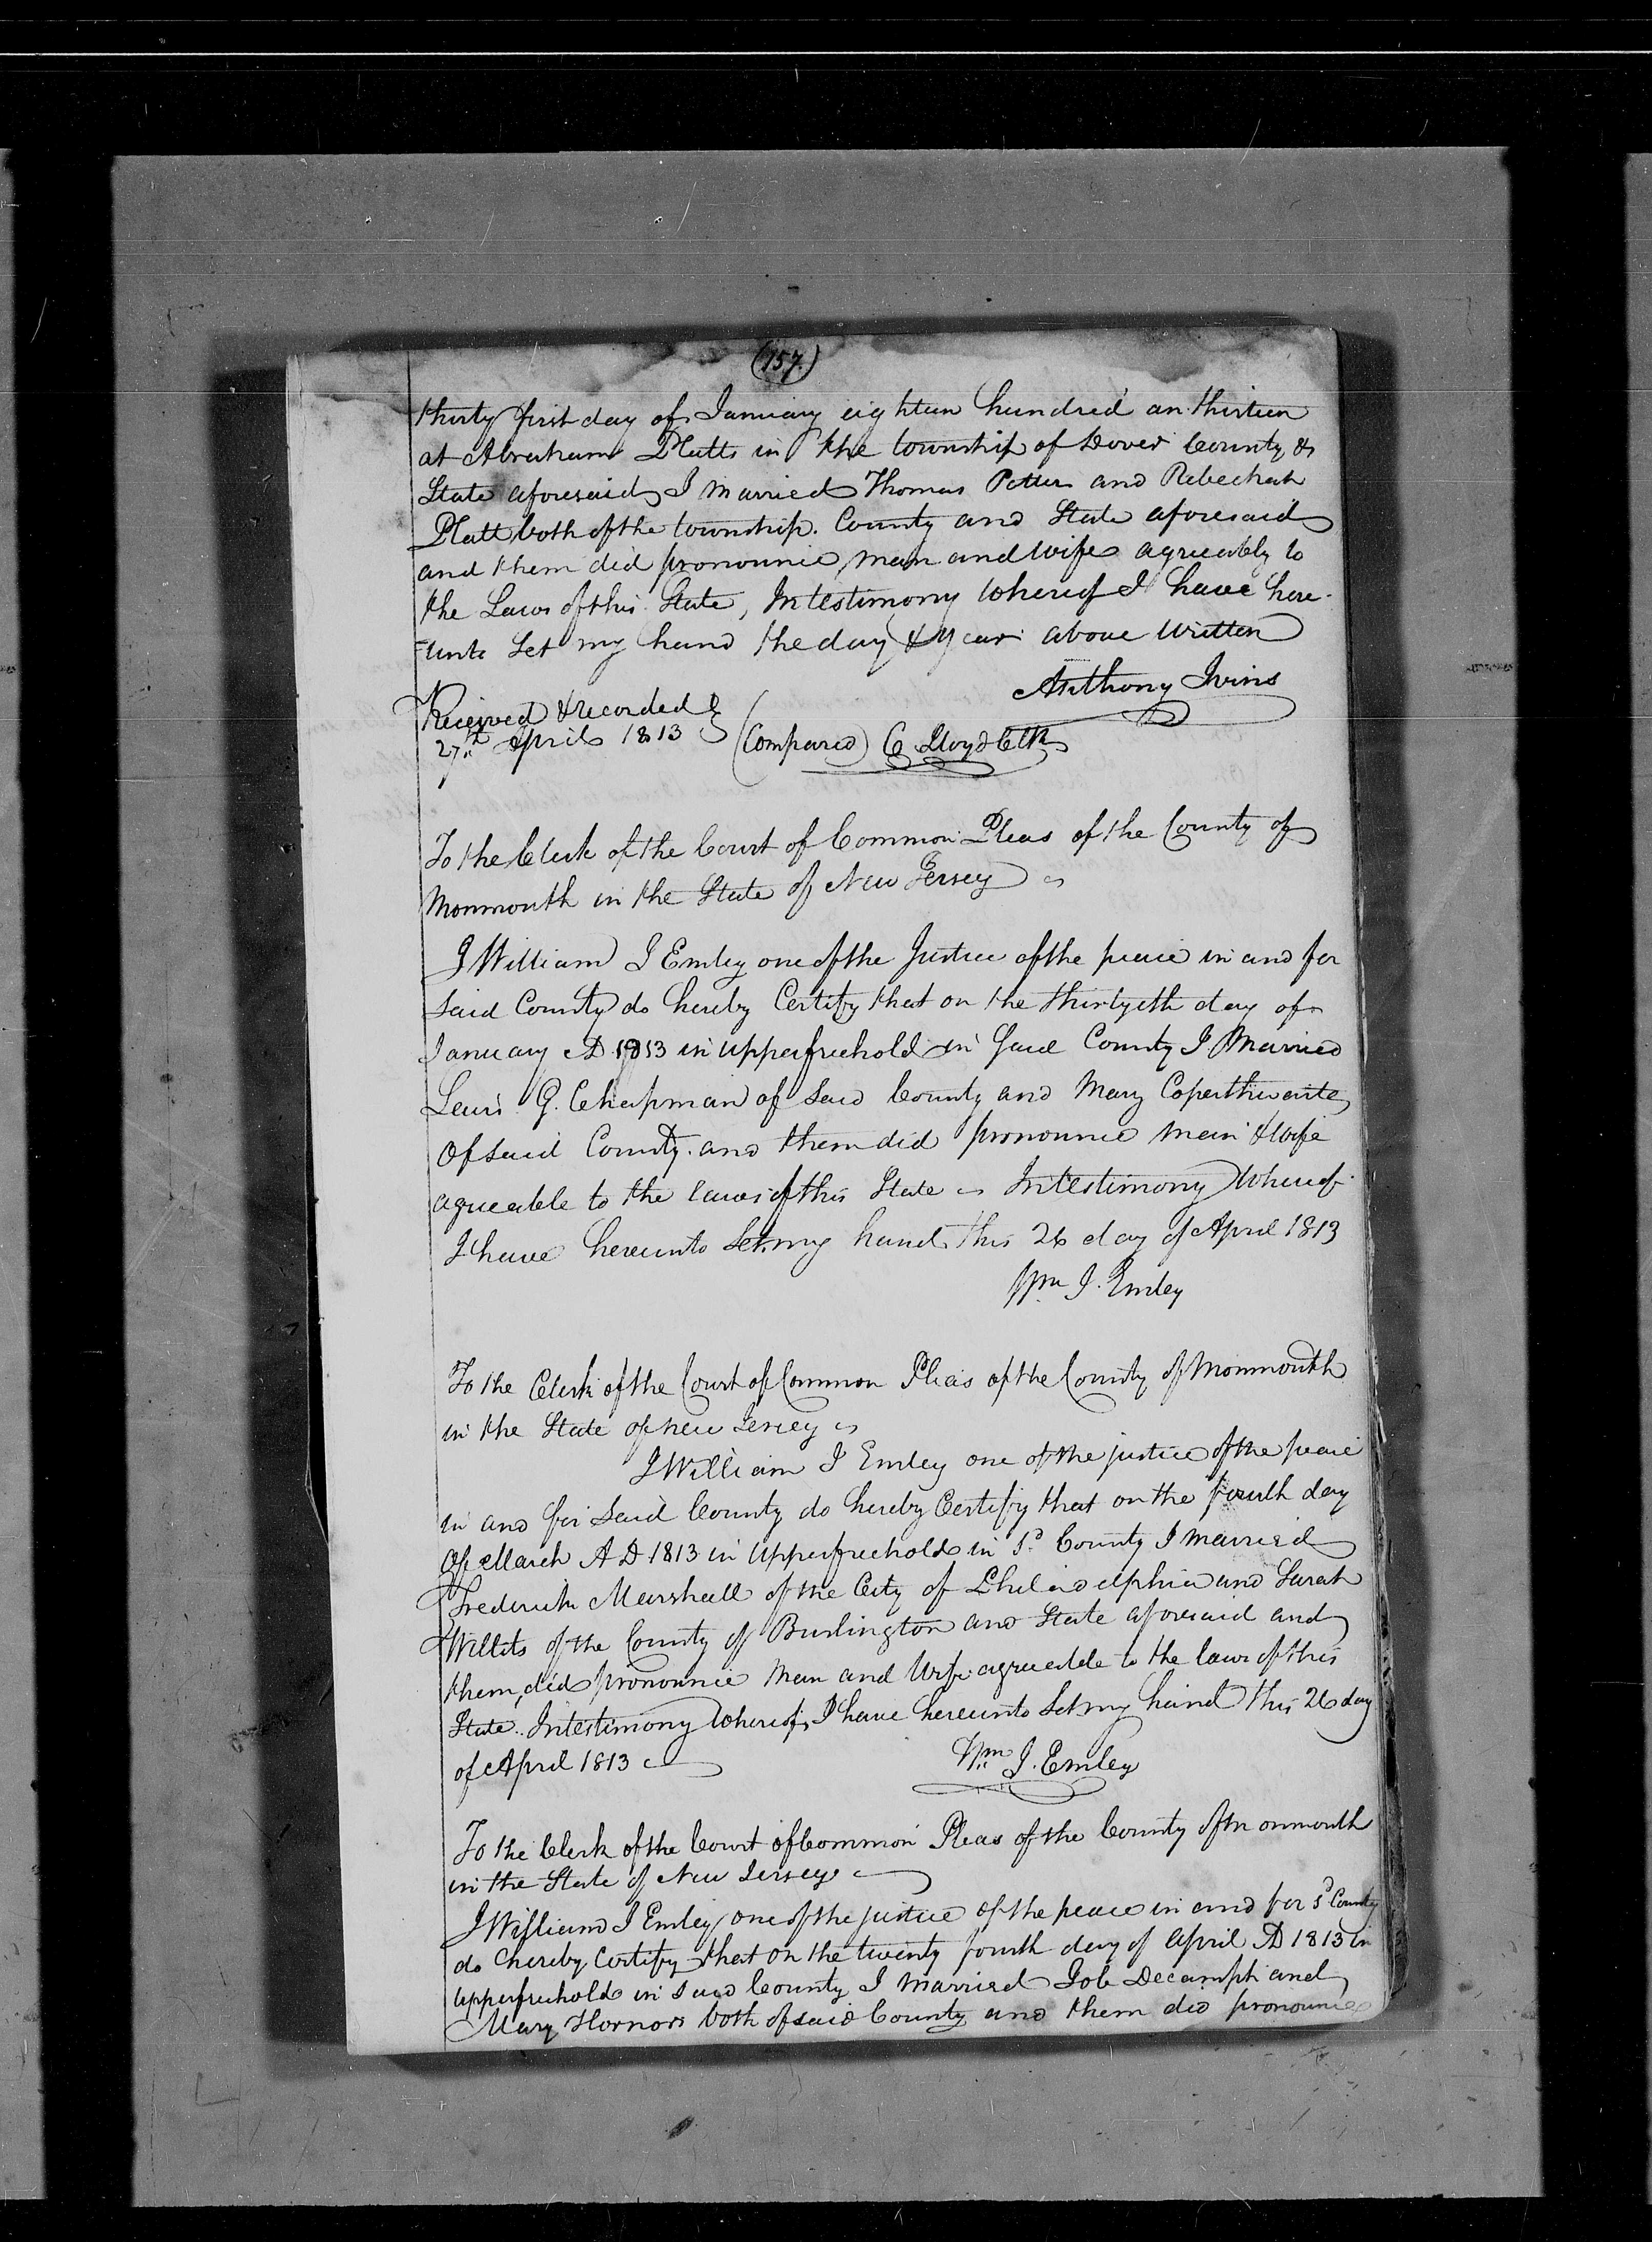 (157)
thirty first day of January eighteen hundred an thirteen
at Abraham Platts in the township of Dover County &
State aforesaid I Married Thomas Potter and Rebechah
Platt both of the township. County and State aforesaid
and them did pronounce man and wife agreeably to
the Laws of this State, Intestimony whereof I have here-
=unto Set my hand the day & year above written
Anthony Ivins
Received & recorded
27th April 1813 (Compared) C Lloyd Clk
To the Clerk of the Court of Common Pleas of the County of
Monmouth in the State of New Jersey
I William I Emley one of the Justice of the peace in and for
said County do hereby Certify that on the thirtyeth day of
January AD 1813 in upperfreehold in Said County I Married
Lewis G. Chapman of said County and Mary Coperthwaite
of said County. and them did pronounce man & wife
agreeable to the laws of this State Intestimony Whereof
I have hereunto Set my hand this 26 day of April 1813
Wm I. Emley
To the Clerk of the Court of Common Pleas of the County of Monmouth
in the State of new Jersey
I William I Emley one of the justice of the peace
in and for said County do hereby Certify that on the fourth day
of March AD 1813 in upperfreehold in sd County I married
Frederick Marshall of the City of Philadelphia and Sarah
Willits of the County of Burlington and State aforesaid and
them, did pronounce Man and Wife agreeable to the laws of this
State.. Intestimony whereof, I have hereunto Set my hand this 26 day
of April 1813
Wm I. Emley
To the Clerk of the Court of Common Pleas of the County of monmouth
in the State of New Jersey
I William I Emley one of the justice of the peace in and for sd County
do hereby Certify that on the twenty fourth day of April AD 1813 in
upperfreehold in said County I Married Job Decamph and
Mary Hornor both of said County and them did pronounce